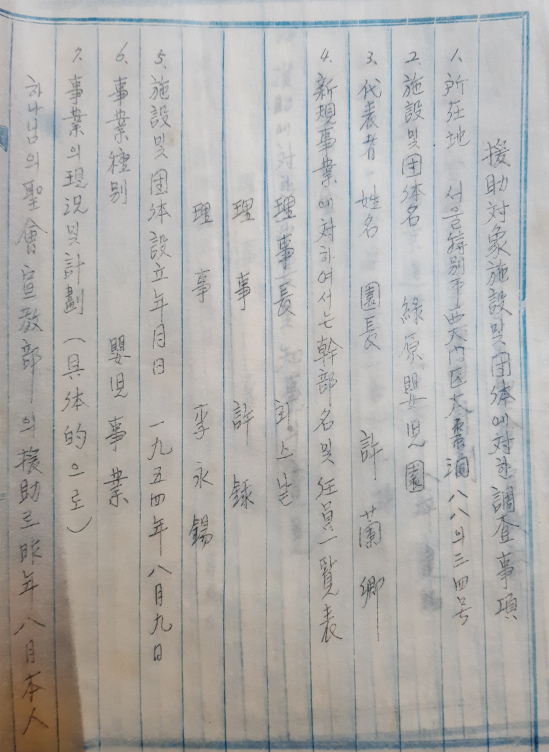 援助对象施設및团体에対한調査事項
1. 所在地 서울特别市西大門区大玄洞八八의三四号
2. 施設및团体名 綠原嬰児園
3. 代表者 姓名 園長 許蘭鄕
4. 新規事業에対하여서는幹部名및任員一覽表
理事長 히·스날
理事 許錄
理事 李永錫
5. 施設및団体設立年月日 一九五四年八月九日
6. 事業種别 嬰児事業
7. 事業의現況및計劃(具体的으로)
하나님의聖會宣敎部의援助로昨年八月本人